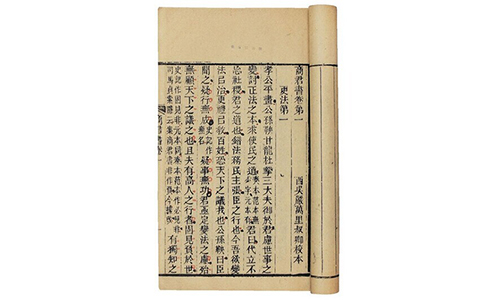 商君書卷第一
西吳嚴萬里叔卿校本
更法第一
孝公平畫公孫鞅甘龍杜摯三大夫御於君慮世事之
變討正法之本求使民之道君曰代立不
忘社稷君之道也錯法務民主張臣之行也今吾欲變
法以治更禮以教百姓恐天下之議我也公孫鞅曰臣
聞之疑行無成疑事無功君亟定變法之慮殆
無顧天下之議之也且夫有高人之行者固見負於世
有獨知之
商君書卷一